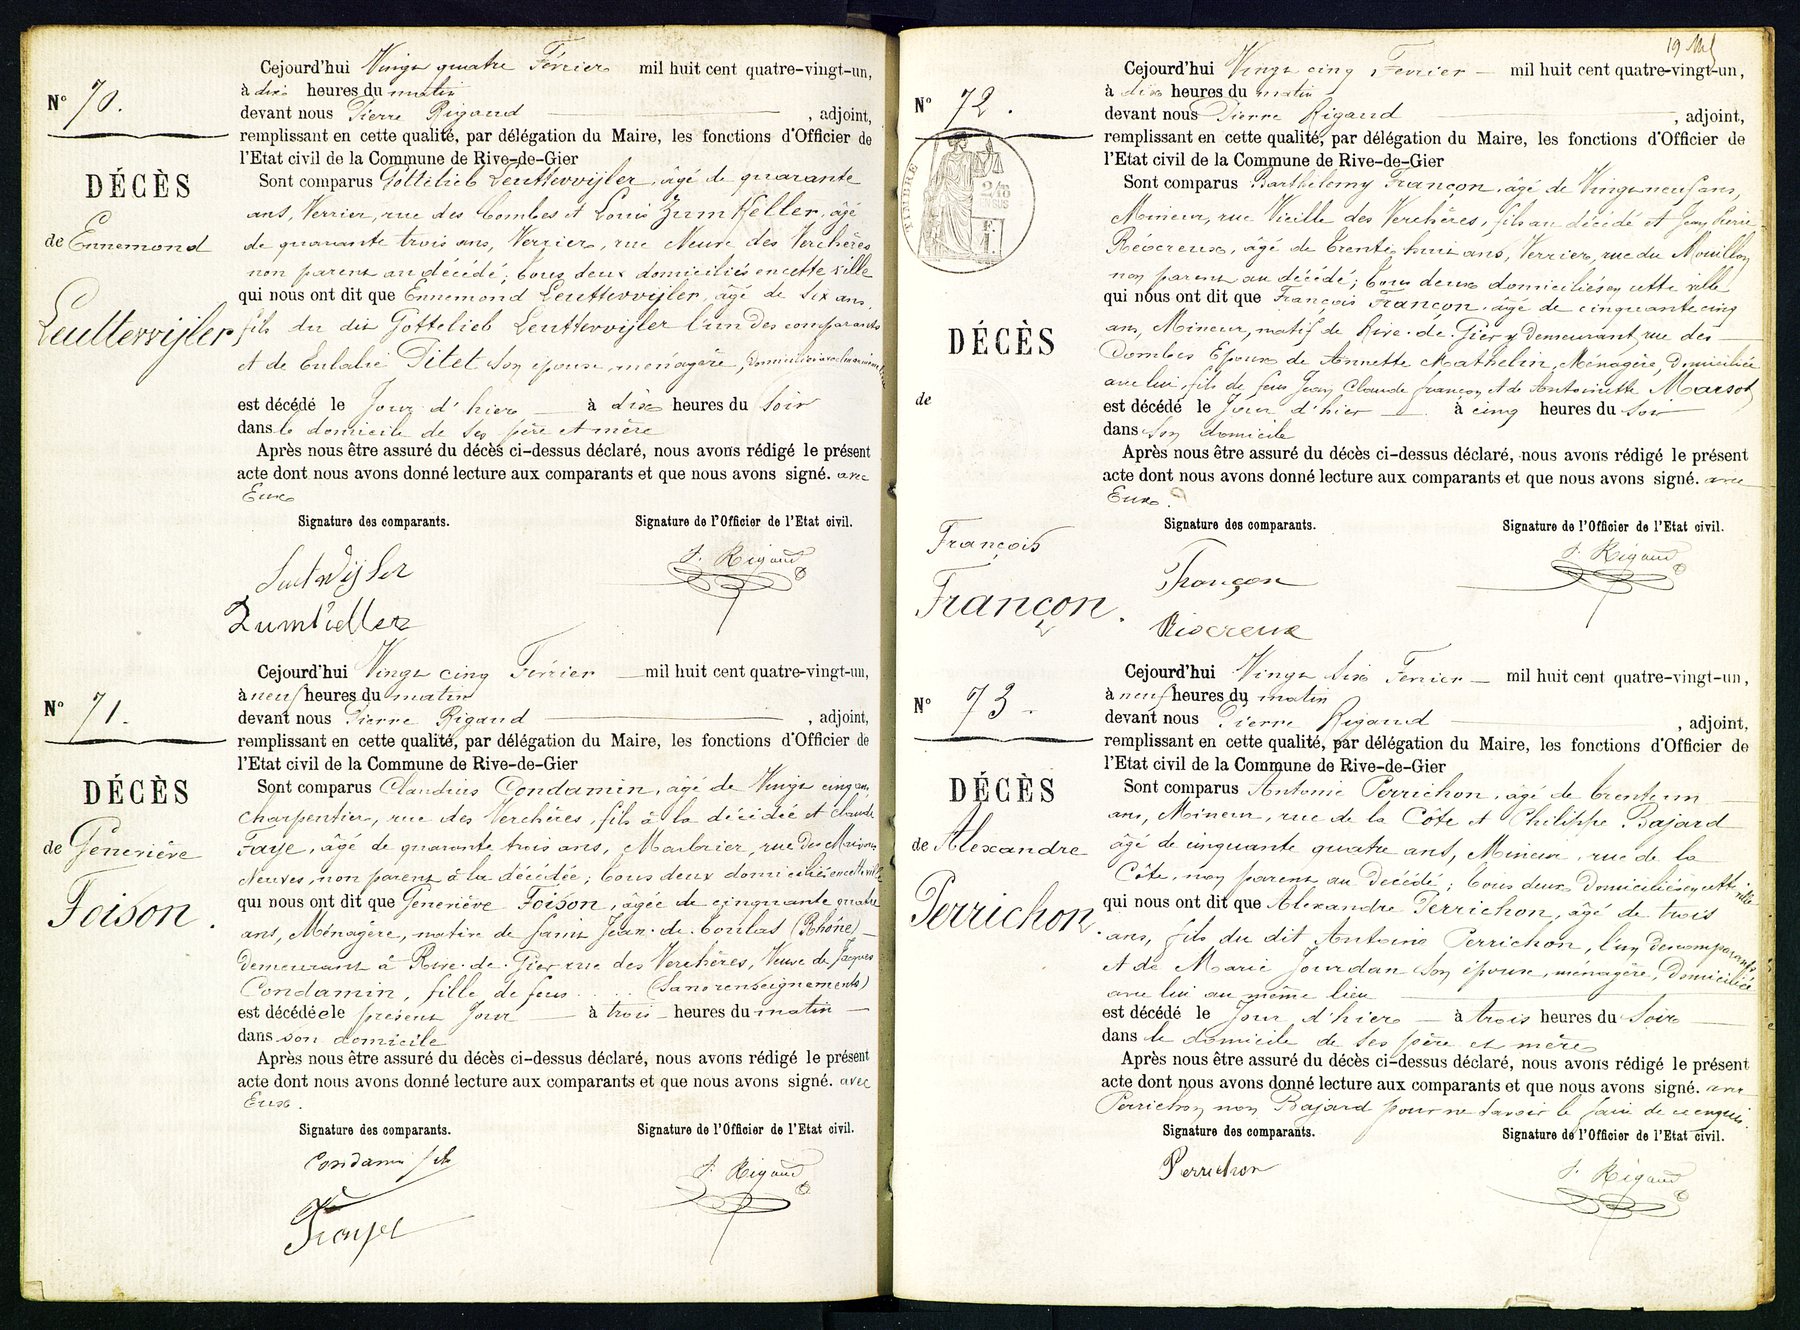 Cejourd'hui Vingt quatre Février mil huit cent quatre-vingt-un,
à dix heures du matin
N° 70.
devant nous Pierre Rigaud , adjoint,
remplissant en cette qualité, par délégation du Maire, les fonctions d'Officier de
l'Etat civil de la Commune de Rive-de-Gier
DÉCÈS
Sont comparus Gottelieb Leuttervijler, âgé de quarante
ans, Verrier, rue des Combes et Louis Zumkeller, âgé
de Ennemond
de quarante trois ans, Verrier, rue Neuve des Verchères
non parent au décédé; tous deux domiciliés en cette ville
qui nous ont dit que Ennemond Leuttervijler, âgé de Six ans,
Leuttervijler
fils du dit Gottelieb Leuttervijler l'un des comparants
et de Eulalie Pitet son épouse, ménagère,
est décédé le Jour d'hier à dix heures du Soir
dans le domicile de ses père et mère
Après nous être assuré du décès ci-dessus déclaré, nous avons rédigé le présent
acte dont nous avons donné lecture aux comparants et que nous avons signé. avec
Eux
Signature des comparants. Signature de l'Officier de l'Etat civil.
P. Rigaud
Zumkeller
Cejourd'hui Vingt cinq Février mil huit cent quatre-vingt-un,
à neuf heures du matin
N° 71.
devant nous Pierre Rigaud , adjoint,
remplissant en cette qualité, par délégation du Maire, les fonctions d'Officier de
l'Etat civil de la Commune de Rive-de-Gier
DÉCÈS
Sont comparus Claudius Condamin, âgé de Vingt cinq ans,
charpentier, rue des Verchères, fils à la décédée et Claude
de Geneviève
Faye, âgé de quarante trois ans, Marbrier, rue des Maisons
Neuves, non parent à la décédée; tous deux domiciliés en cette ville
Foison.
qui nous ont dit que Geneviève Foison, âgée de cinquante quatre
ans, Ménagère, native de Saint Jean-de-Toulas (Rhône)
Demeurant à Rive-de-Gier rue des Verchères, Veuve de Jacques
Condamin, fille de feus ..... (Sans renseignements)
est décédée le présent Jour à trois heures du matin
dans son domicile
Après nous être assuré du décès ci-dessus déclaré, nous avons rédigé le présent
acte dont nous avons donné lecture aux comparants et que nous avons signé. avec
Eux.
Signature des comparants. Signature de l'Officier de l'Etat civil.
Condamin fils
P. Rigaud
19
Cejourd'hui Vingt cinq Fevrier mil huit cent quatre-vingt-un,
à dix heures du matin
N° 72.
devant nous Pierre Rigaud , adjoint,
remplissant en cette qualité, par délégation du Maire, les fonctions d'Officier de
l'Etat civil de la Commune de Rive-de-Gier
TIMBRE
Sont comparus Barthelemy Françon, âgé de Vingt neuf ans,
Mineur, rue Vieille des Verchères, fils au décédé et Jean Pierre
Révereux, âgé de Trente huit ans, Verrier, rue du Mouillon
non parent au décédé; tous deux domiciliés en cette ville
qui nous ont dit que François Françon, âgé de cinquante cinq
ans, Mineur, natif de Rive-de-Gier y demeurant rue des
DÉCÈS
Combes Epoux de Annette Mathelin, Ménagère, Domiciliée
avec lui, fils de feus Jean Claude Françon, et de Antoinette Marsot
de
est décédé le Jour d'hier à cinq heures du Soir
dans son domicile
Après nous être assuré du décès ci-dessus déclaré, nous avons rédigé le présent
acte dont nous avons donné lecture aux comparants et que nous avons signé. avec
Eux.
Signature des comparants. Signature de l'Officier de l'Etat civil.
François
P. Rigaud
Françon
Françon.
Révereux
Cejourd'hui Vingt Six Fevrier mil huit cent quatre-vingt-un,
à neuf heures du matin
N° 73.
devant nous Pierre Rigaud , adjoint,
remplissant en cette qualité, par délégation du Maire, les fonctions d'Officier de
l'Etat civil de la Commune de Rive-de-Gier
DÉCÈS
Sont comparus Antoine Perrichon, âgé de trente un
ans, Mineur, rue de la Côte et Philippe Bajard
de Alexandre
âgé de cinquante quatre ans, Mineur, rue de la
Côte, non parent au Décédé; tous deux Domiciliés en cette ville
Perrichon.
qui nous ont dit que Alexandre Perrichon, âgé de trois
ans, fils du dit Antoine Perrichon, l'un des comparants
et de Marie Jourdan Son épouse, ménagère, Domiciliée
avec lui au même lieu
est décédé le Jour d'hier à trois heures du Soir
dans le domicile de ses père et mère
Après nous être assuré du décès ci-dessus déclaré, nous avons rédigé le présent
acte dont nous avons donné lecture aux comparants et que nous avons signé. avec
Perrichon non Bajard pour ne savoir le faire de ce enquis.
Signature des comparants. Signature de l'Officier de l'Etat civil.
Perrichon
P. Rigaud